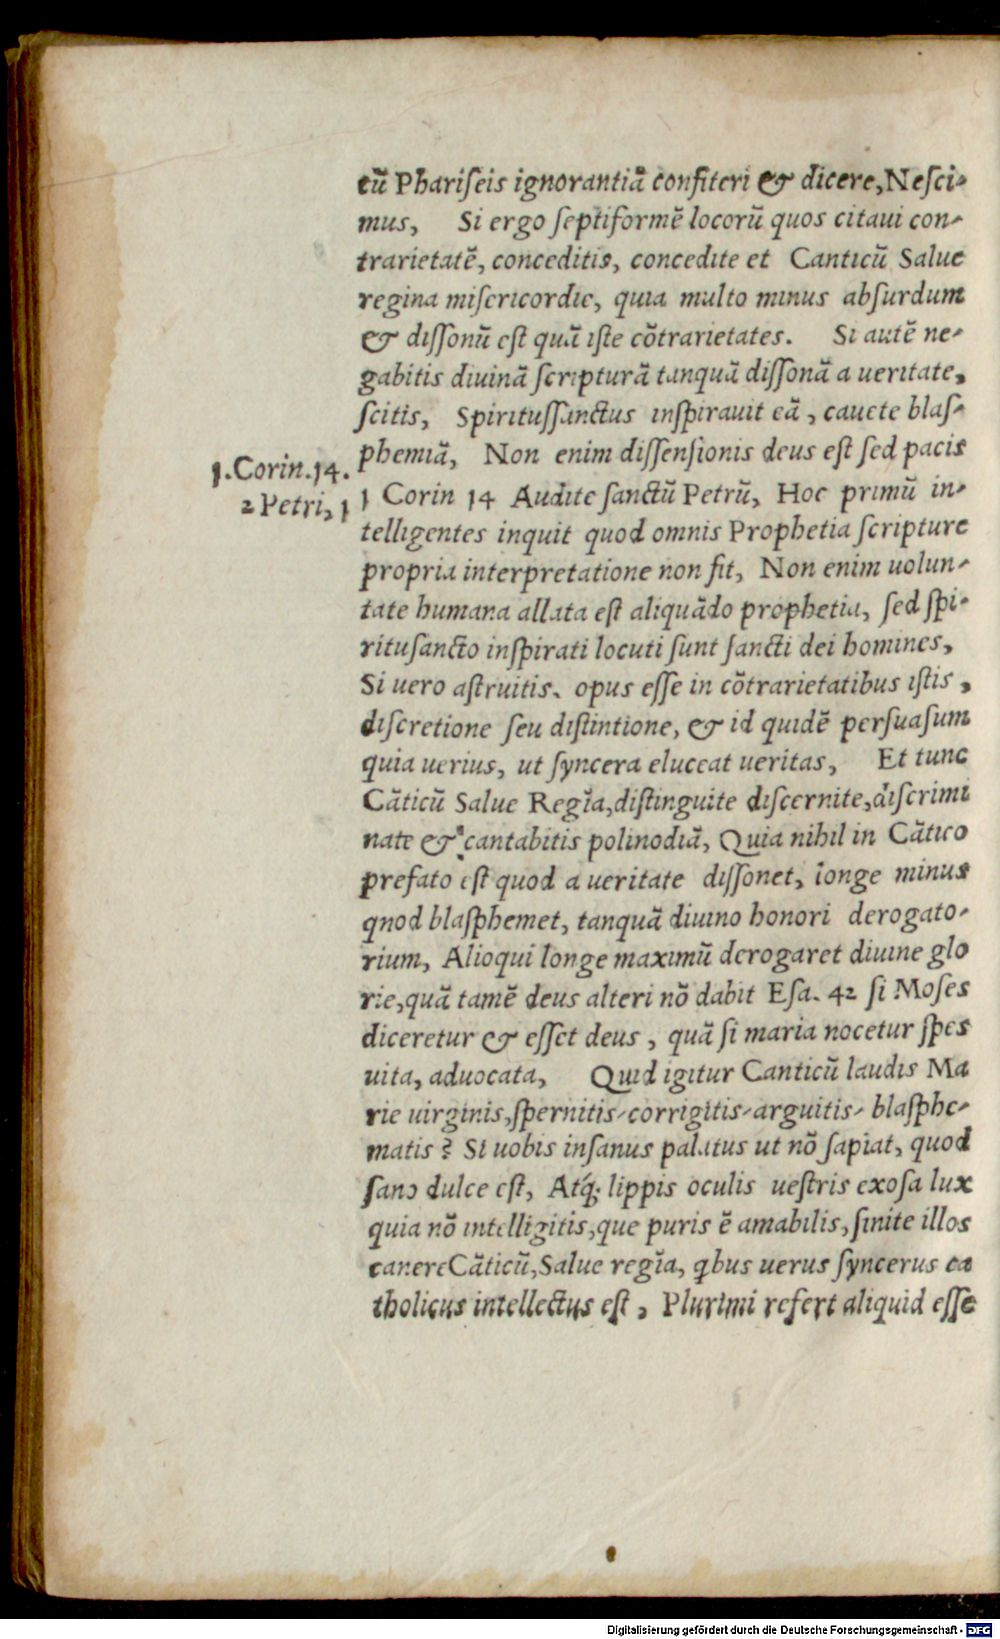 cũ Phariſeis ignorantiã confiteri & dicere,Neſci-
mus, Si ergo ſeptiformẽ locorũ quos citaui con-
trarietatẽ, conceditis, concedite et Canticũ Salue
regina miſericordie, quia multo minus abſurdum
& diſſonũ eſt quã iſte cõtrarietates. Si autẽ ne-
gabitis diuinã ſcripturã tanquã diſſonã a ueritate,
ſcitis, Spirituſſanctus inſpirauit eã, cauete blaſ-
phemiã, Non enim diſſenſionis deus eſt ſed pacis
1.Corin.14.
2 Petri, 1
1 Corin 14 Audite ſanctũ Petrũ, Hoc primũ in-
telligentes inquit quod omnis Prophetia ſcripture
propria interpretatione non fit, Non enim uolun-
tate humana allata eſt aliquãdo prophetia, ſed ſpi-
rituſancto inſpirati locuti ſunt ſancti dei homines,
Si uero aſtruitis. opus eſſe in cõtrarietatibus iſtis,
diſcretione ſeu diſtintione, & id quidẽ perſuaſum
quia uerius, ut ſyncera eluceat ueritas, Et tunc
Cãticũ Salue Regĩa,diſtinguite diſcernite,diſcrimi
nate & cantabitis polinodiã, Quia nihil in Cãtico
prefato eſt quod a ueritate diſſonet, longe minus
qnod blaſphemet, tanquã diuino honori derogato-
rium, Alioqui longe maximũ derogaret diuine glo
rie,quã tamẽ deus alteri nõ dabit Eſa. 42 ſi Moſes
diceretur & eſſet deus, quã ſi maria nocetur ſpes
uita, aduocata, Quid igitur Canticũ laudis Ma
rie uirginis,ſpernitis-corrigitis-arguitis-blaſphe-
matis? Si uobis inſanus palatus ut nõ ſapiat, quod
ſano dulce eſt, Atq́; lippis oculis ueſtris exoſa lux
quia nõ intelligitis,que puris ẽ amabilis,ſinite illos
canere Cãticũ,Salue regĩa, q̃bus uerus ſyncerus ca
tholicus intellectus eſt, Plurimi refert aliquid eſſe
Digitalisierung gefördert durch die Deutsche Forschungsgemeinschaft - DFG